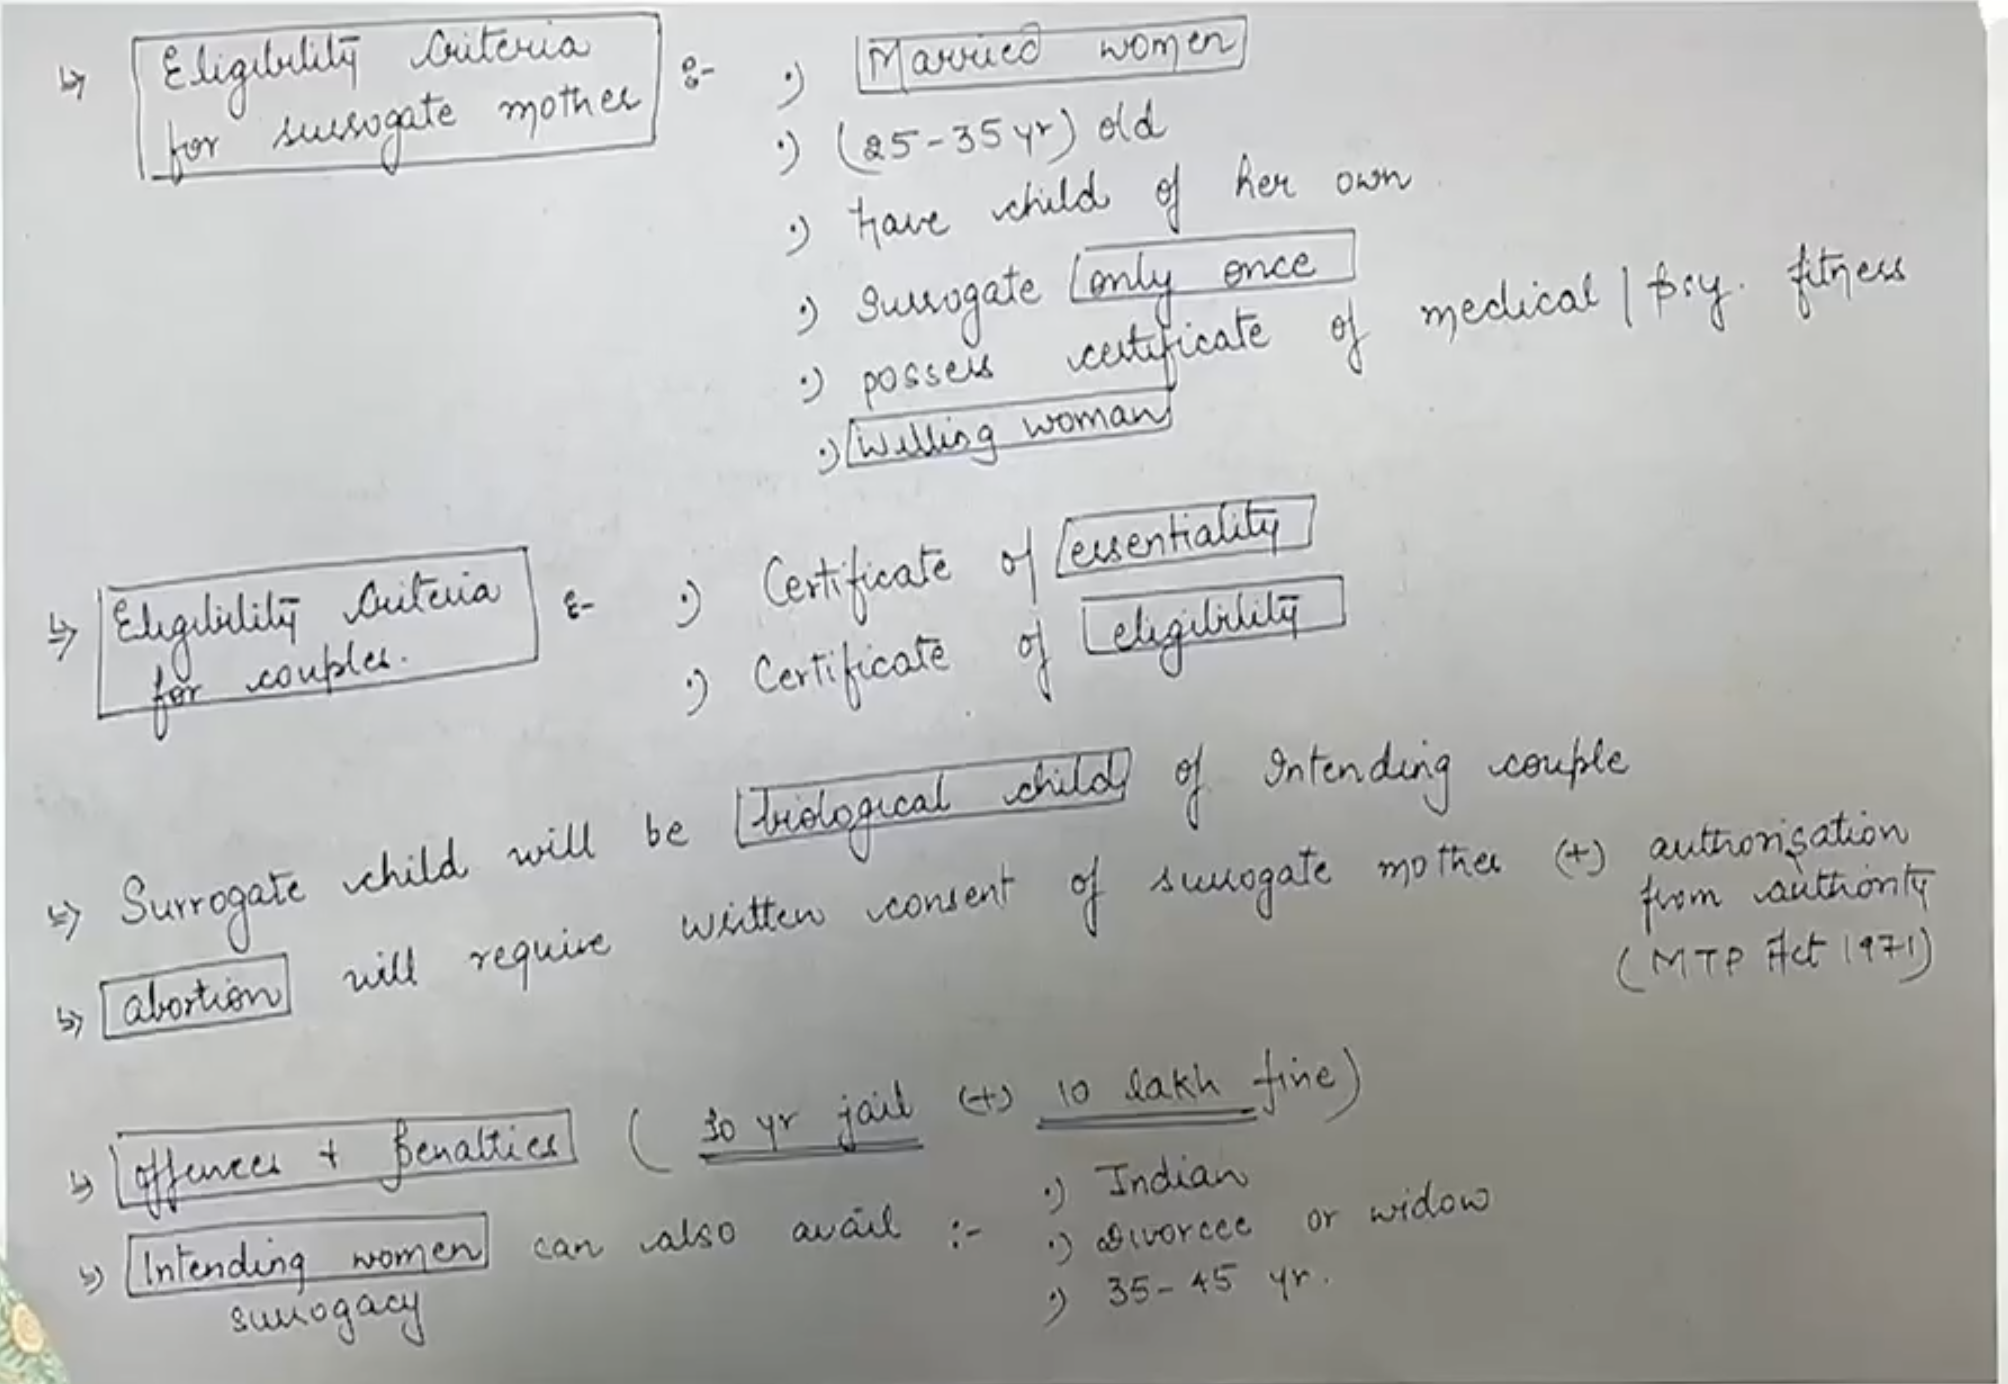 ↳ Eligibility Criteria :- •) Married women
for surrogate mother
•) (25-35 yr) old
•) have child of her own
•) Surrogate only once
•) possess certificate of medical / psy. fitness
•) Willing woman
↳ Eligibility Criteria :- •) Certificate of essentiality
for couples.
•) Certificate of eligibility
↳ Surrogate child will be biological child of Intending couple
↳ abortion will require written consent of surrogate mother (+) authorisation
from authority
(MTP Act 1971)
↳ offences + Penalties ( 10 yr jail (+) 10 lakh fine)
↳ Intending women can also avail :- •) Indian
surrogacy
•) Divorcee or widow
•) 35-45 yr.